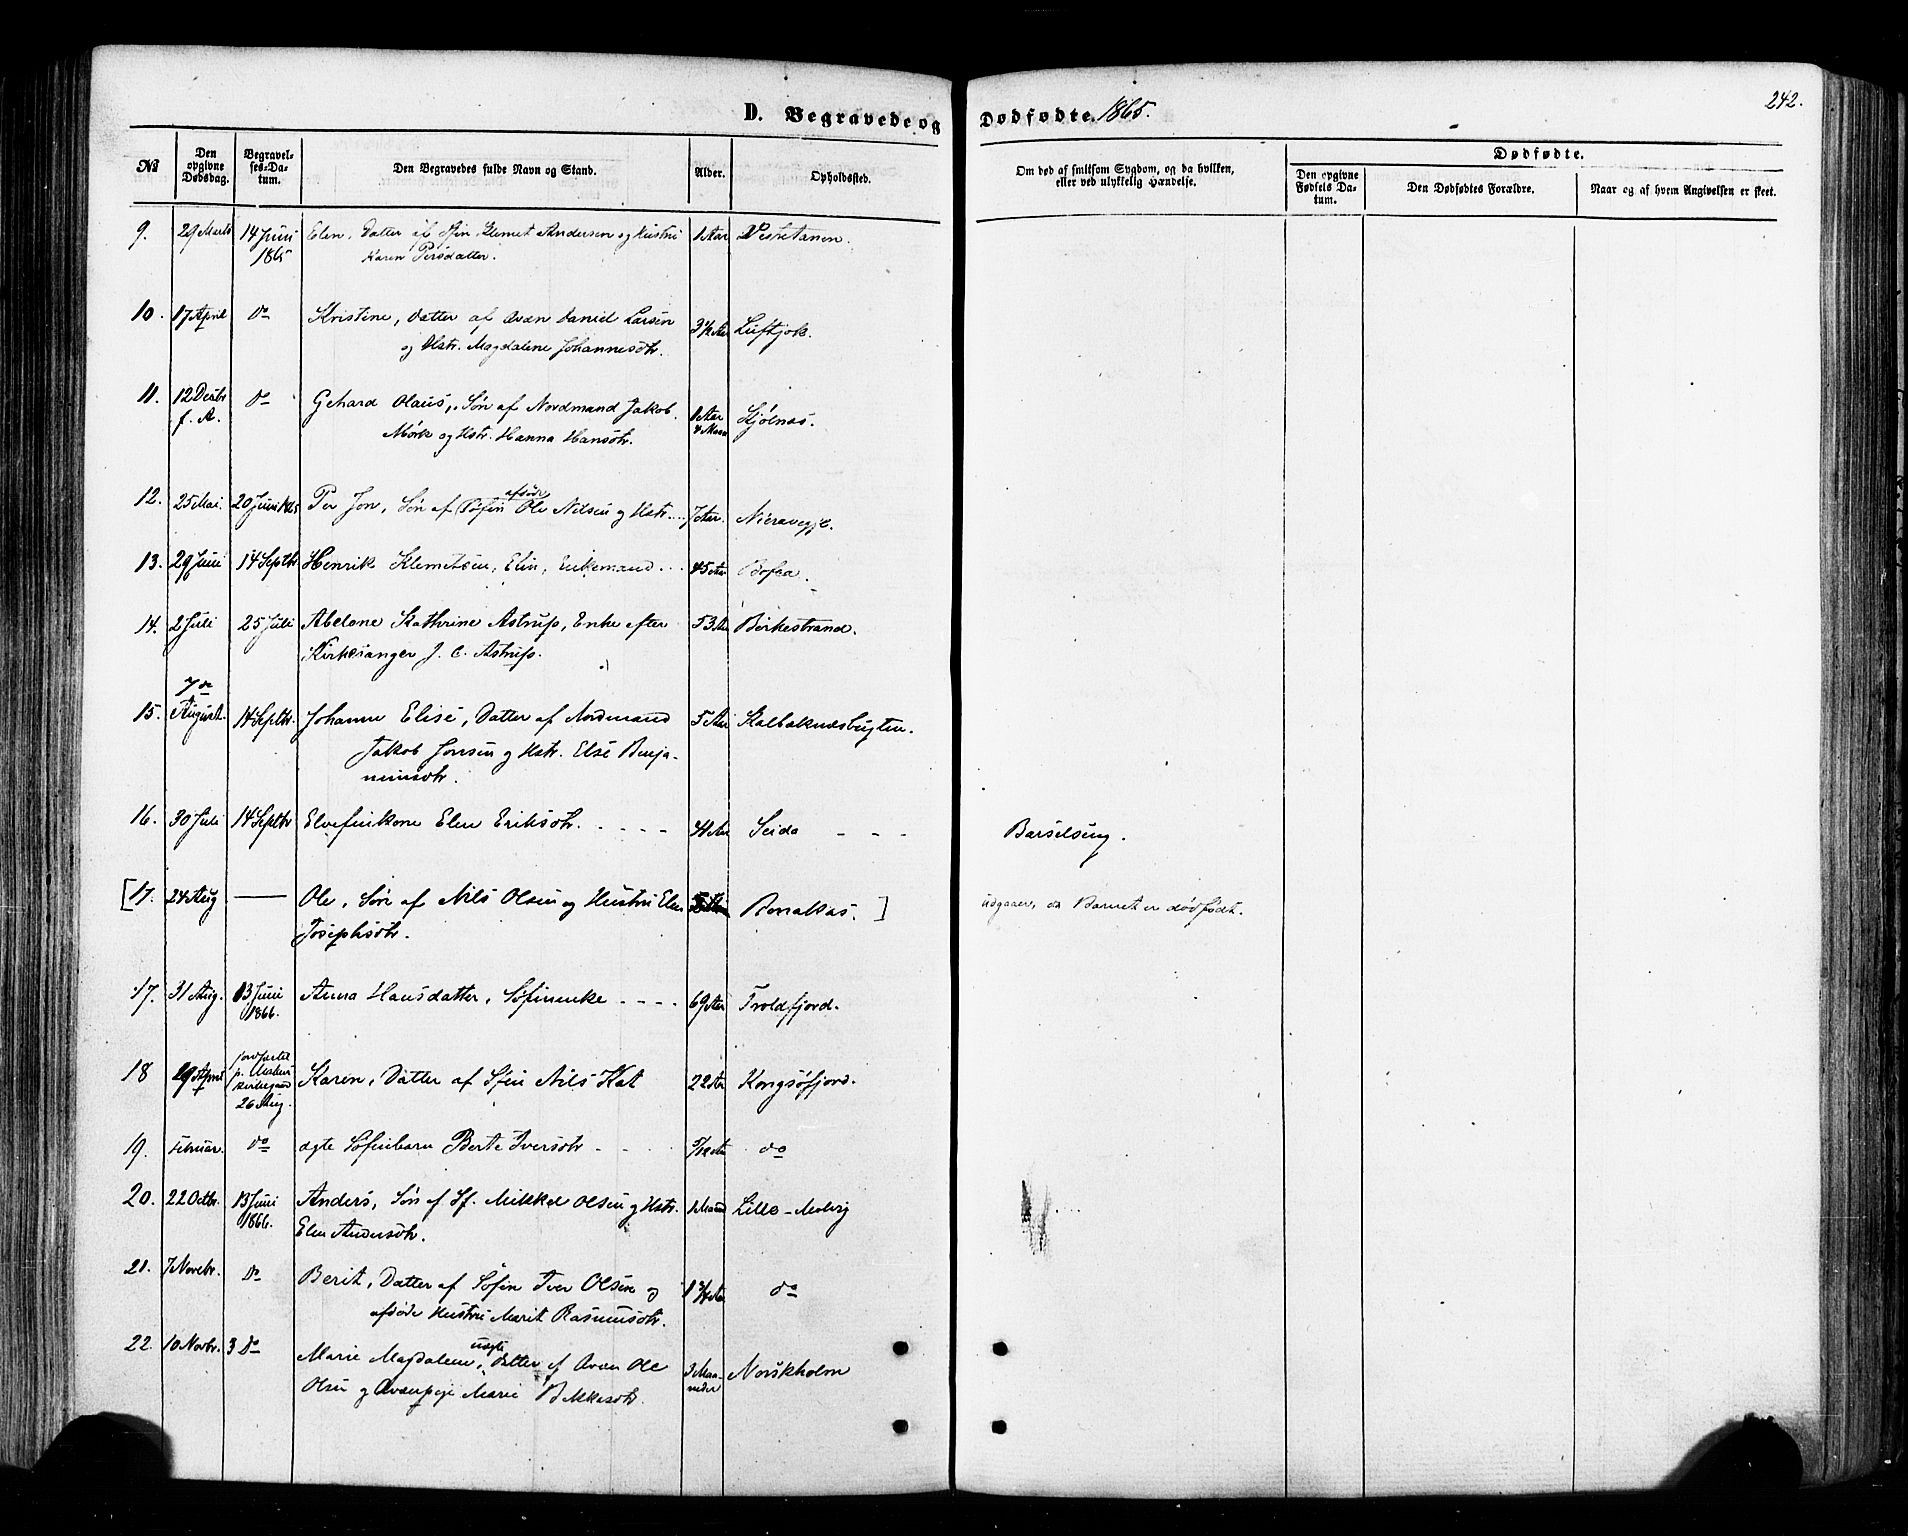 242.
D. Begravede og Dødfødte. 1865.
No
Den opgivne Dødsdag.
Begravelses-Datum.
Den Begravedes fulde Navn og Stand.
Alder.
Opholdssted.
Om død af smitsom Sygdom, og da hvilken, eller ved ulykkelig Hændelse.
Dødfødte.
Den opgivne Fødsels Datum.
Den Dødfødtes Forældre.
Naar og af hvem Angivelsen er skeet.
9. 29 Marts 14 Juni Elen, Datter af Klemet Andersen og Hustru 1 Aar Vestertanen.
1865 Karen Persdatter.
10. 17 April do Kristine, Datter af Qvæn Daniel Larsen 3 1/2 Aar Luftjok.
og Hstr. Magdalene Johannesdtr.
11. 12 Decbr do Gerhard Olaus, Søn af Nordmand Jakob 1 Aar Stjølnæs.
f. A. Mörk og Hstr. Hanna Hansdtr. 4 Maan
12. 25 Mai. 20 Juni 1865 Per Jon, Søn af Søfin afdöde Ole Nilsen og Hstr.... 7 Aar.
13. 29 Juni 14 Septbr Henrik Klemetsen, Elvfin, Enkemand... 45 Aar
14. 2 Juli 25 Juli Abelone Kathrine Astrup, Enke efter 53 Aar Birkestrand.
Kirkesanger J. C. Astrup.
7de
15. August. 14 Septbr. Johanne Elise, Datter af Nordmand 5 Aar Kalbaknæsbugten.
Jakob Jonsen og Hstr. Else Benja-
minsdtr.
16. 30 Juli 14 Septbr Elvefinkone Elen Eriksdtr. - - - - 41 Aar Seida - - - Barselseng.
[17. 24 Aug — Ole, Søn af Nils Olsen og Hustru Elen Bonakas. ] udgaaer, da Barnet er dödfödt.
Josephsdtr.
17. 31 Aug. 13 Juni Anna Hansdatter, Søfinenke - - - - 69 Aar Troldfjord.
1866.
18 29 April jordfæstet Karen, Datter af Sfin Nils Kat 22 Aar Kongsøfjord.
p.
Kirkegaard
26 Aug.
19. Februar. do ægte Søfinbarn Berte Iversdtr - - - 5/12 Aar do
20. 22 Octbr. 13 Juni Anders, Søn af Sf. Mikkel Olsen og Hstr. 1 Maand Lille-Molvig
1866. Elen Andersdtr.
21. 7 Novebr. do Berit, Datter af Søfin Iver Olsen og 1 3/4 Aar do
afdöde Hustru Marit Rasmusdtr.
22. 10 Novbr. 3 do Marie Magdalene, uægte Datter af Qvæn Ole 3 Maa- Norskholm
Olsen og Qvænpige Marie neder